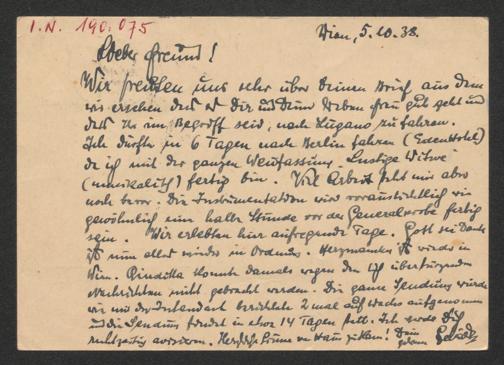 I.N. 190.075
Wien, 5.10.38.
Lieber Freund!
Wir freuten uns sehr über Deinen Brief, aus dem
wir ersehen dass es Dir und Deiner lieben Frau gut geht und
dass Ihr im Begriff seid, nach Lugano zu fahren.
Ich dürfte in 6 Tagen nach Berlin fahren (Edenhotel)
da ich mit der ganzen Neufassung - Lustige Witwe
(musikalisch) fertig bin. Viel Arbeit steht mir aber
noch bevor. Die Instrumentation wird voraussichtlich wie
gewöhnlich eine halbe Stunde vor der Generalprobe fertig
sein. Wir erlebten hier aufregende Tage. Gott sei Dank
ist nun alles wieder in Ordnung. ist wieder in
Wien. Giuditta konnte damals wegen den sich überstürzenden
Nachrichten nicht gebracht werden. Die ganze Sendung wurde
wie mir der Intendant berichtete 2 mal auf Wachs aufgenommen
und die Sendung findet in etwa 14 Tagen statt. Ich werde Dich
rechtzeitig avisieren. Herzliche Grüsse von Haus zu Haus! Dein